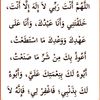 اللَّهُمَّ أَنْتَ رَبِّي لَا إِلَهَ إِلَّا أَنْتَ،
خَلَقْتَنِي وَأَنَا عَبْدُكَ، وَأَنَا عَلَى
عَهْدِكَ وَوَعْدِكَ مَا اسْتَطَعْتُ،
أَعُوذُ بِكَ مِنْ شَرِّ مَا صَنَعْتُ،
أَبُوءُ لَكَ بِنِعْمَتِكَ عَلَيَّ، وَأَبُوءُ
لَكَ بِذَنْبِي، فَاغْفِرْ لِي، فَإِنَّهُ لَا